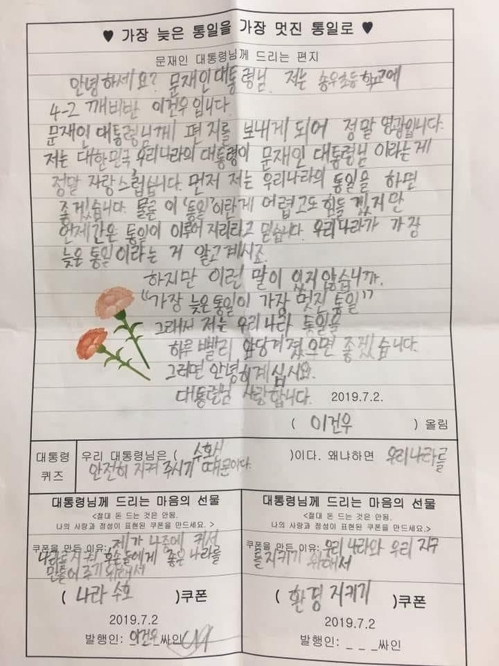 ♥ 가장 늦은 통일을 가장 멋진 통일로 ♥
문재인 대통령님께 드리는 편지
안녕하세요? 문재인대통령님. 저는 송우초등학교에
4-2 깨비반 이건우입니다
문재인 대통령님께 편지를 보내게 되어 정말 영광입니다.
저는 대한민국 우리나라의 대통령이 문재인 대통령님 이라는게
정말 자랑스럽습니다. 먼저 저는 우리나라의 통일을 하면
좋겠습니다. 물론 이 '통일'이란게 어렵고도 힘들 겠지만
언제간은 통일이 이루어 지리라고 믿습니다. 우리나라가 가장
늦은 통일이라는 거 알고계시죠.
하지만 이런 말이 있지 않습니까.
"가장 늦은 통일이 가장 멋진 통일"
그래서 저는 우리나라 통일을
하루 빨리, 앞당겨졌으면 좋겠습니다.
그러면 안녕히계십시요.
대통령님 사랑합니다.
2019.7.2.
( 이건우 ) 올림
대통령 퀴즈
우리 대통령님은 ( 수호신 )이다. 왜냐하면 우리나라를
안전히 지켜 주시기 때문이다.
대통령님께 드리는 마음의 선물
<절대 돈 드는 것은 안됨.
나의 사랑과 정성이 표현된 쿠폰을 만드세요.>
쿠폰을 만든 이유: 제가 나중에 커서
나라를 지켜 후손들에게 좋은 나라를
만들어 주기 위해서
( 나라 수호 )쿠폰
2019.7.2
발행인: 이건우싸인
대통령님께 드리는 마음의 선물
<절대 돈 드는 것은 안됨.
나의 사랑과 정성이 표현된 쿠폰을 만드세요.>
쿠폰을 만든 이유: 우리 나라와 우리 지구
를 지키기 위해서
( 환경 지키기 )쿠폰
2019.7.2
발행인: _ _ _싸인